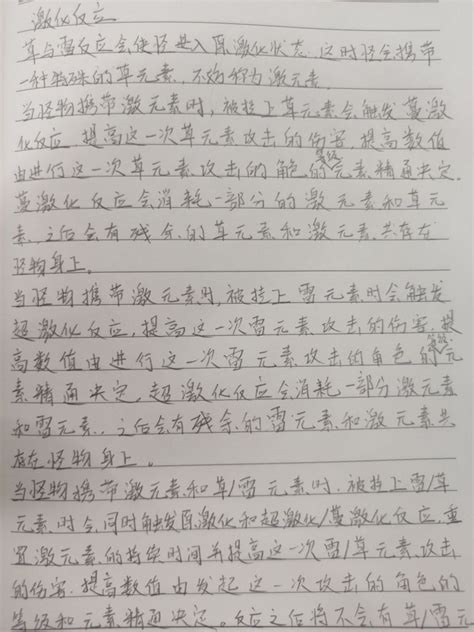 激化反应
草与雷反应会使怪进入原激化状态,这时怪会携带
一种特殊的草元素,不妨称为激元素.
当怪物携带激元素时,被挂上草元素会触发蔓激
化反应,提高这一次草元素攻击的伤害,提高数值
由进行这一次草元素攻击的角色的等级元素精通决定.
蔓激化反应会消耗一部分的激元素和草元
素,之后会有残余的草元素和激元素共存在
怪物身上。
当怪物携带激元素时,被挂上雷元素时会触发
超激化反应,提高这一次雷元素攻击的伤害,提
高数值由进行这一次雷元素攻击的角色的等级元
素精通决定,超激化反应会消耗一部分激元素
和雷元素,之后会有残余的雷元素和激元素共
存在怪物身上。
当怪物携带激元素和草/雷元素时,被挂上雷/草
元素时会同时触发原激化和超激化/蔓激化反应,重
置激元素的持续时间并提高这一次雷/草元素攻击
的伤害,提高数值由发起这一次攻击的角色的
等级和元素精通决定。反应之后将不会有草/雷元